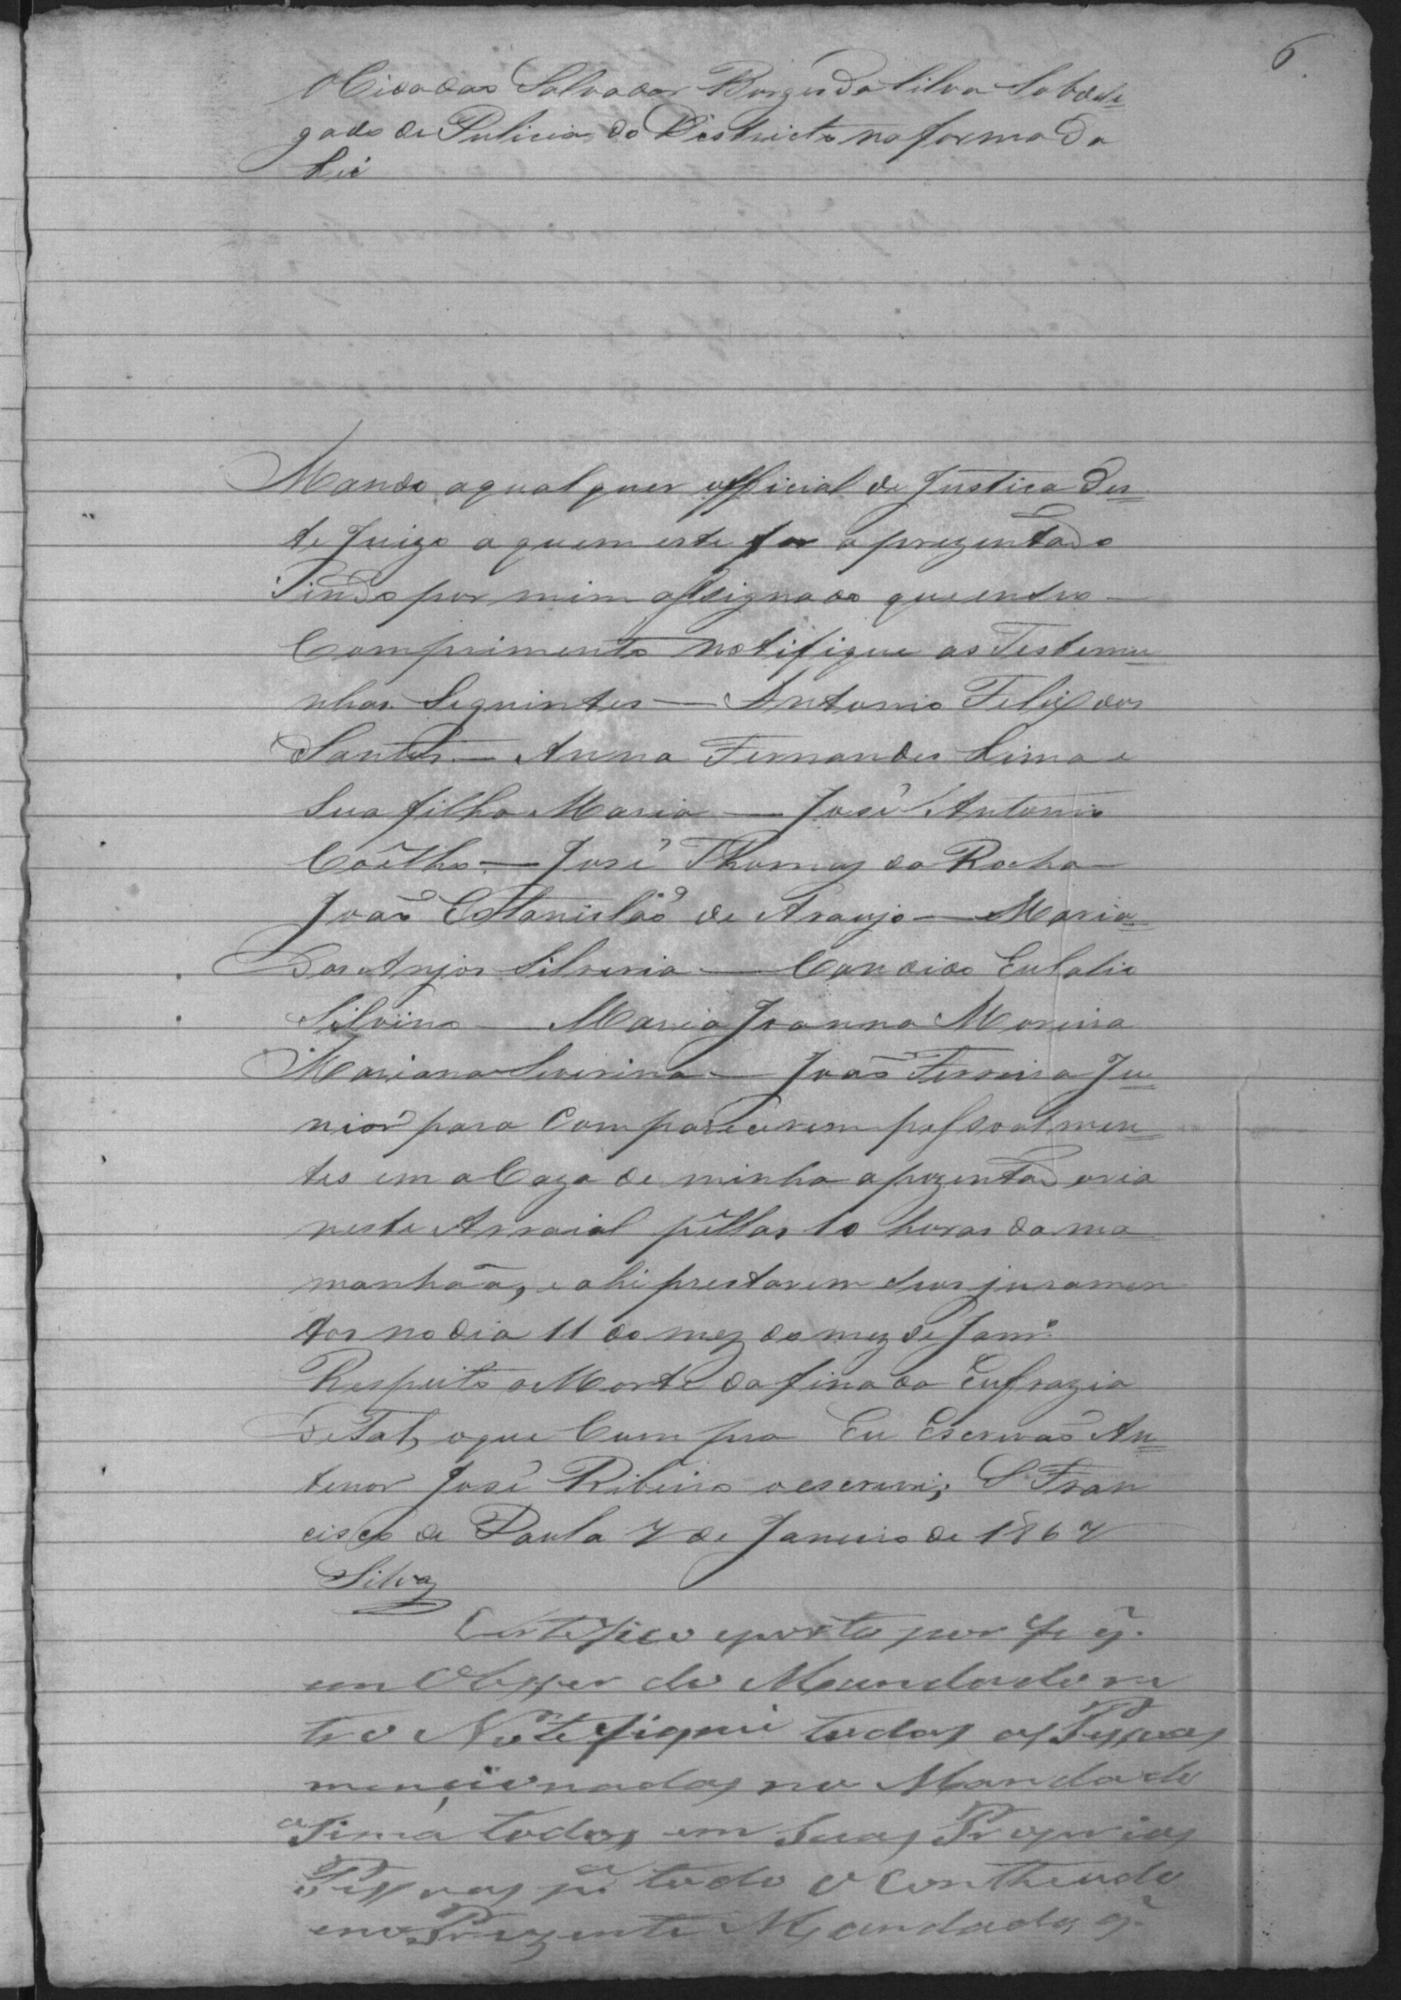 6
O Cidadão Salvador Borges da Silva Subdele-
gado de Pulicia do Districto na forma da
Lei
Mando aqualquer official de Justica des-
te Juizo a quem este for aprezentado
indo por mim assignado que en seo
Comprimento notifique as Testemu-
nhas Seguintes — Antonio Felix dos
Santos — Anna Fernandes Lima e
Sua filha Maria — José Antonio
Coêlho — José Thomas da Rocha
João Estanislão de Araujo — Maria
dos Anjos Silveria — Candido Eulalio
Silvino — Maria Joanna Moreira
Mariana Severina — João Ferreira Ju-
nior para Comparecerem pessoalmen-
tes em a Caza de minha apozentadoria
neste Arraial pellas 10 horas da ma
manhaã, e ahi prestarem seus juramen
tos no dia 11 do mez do mez de Janr.º
Respeito a Morte da finada Eufrazia
de Tal, oque Cumpra Eu Escrivão An-
tenor José Ribeiro o escrevi; S Fran
cisco de Paula 7 de Janeiro de 1867
Silva
Certefico eporto por fe q̃.
em do Mandado re
tro Notefiquei todas as Pessoas
mencionadas no Mandado
asima todas em Suas Proprias
Pessoas pª todo o Contheudo
eno Prezente Mandado, q̃.